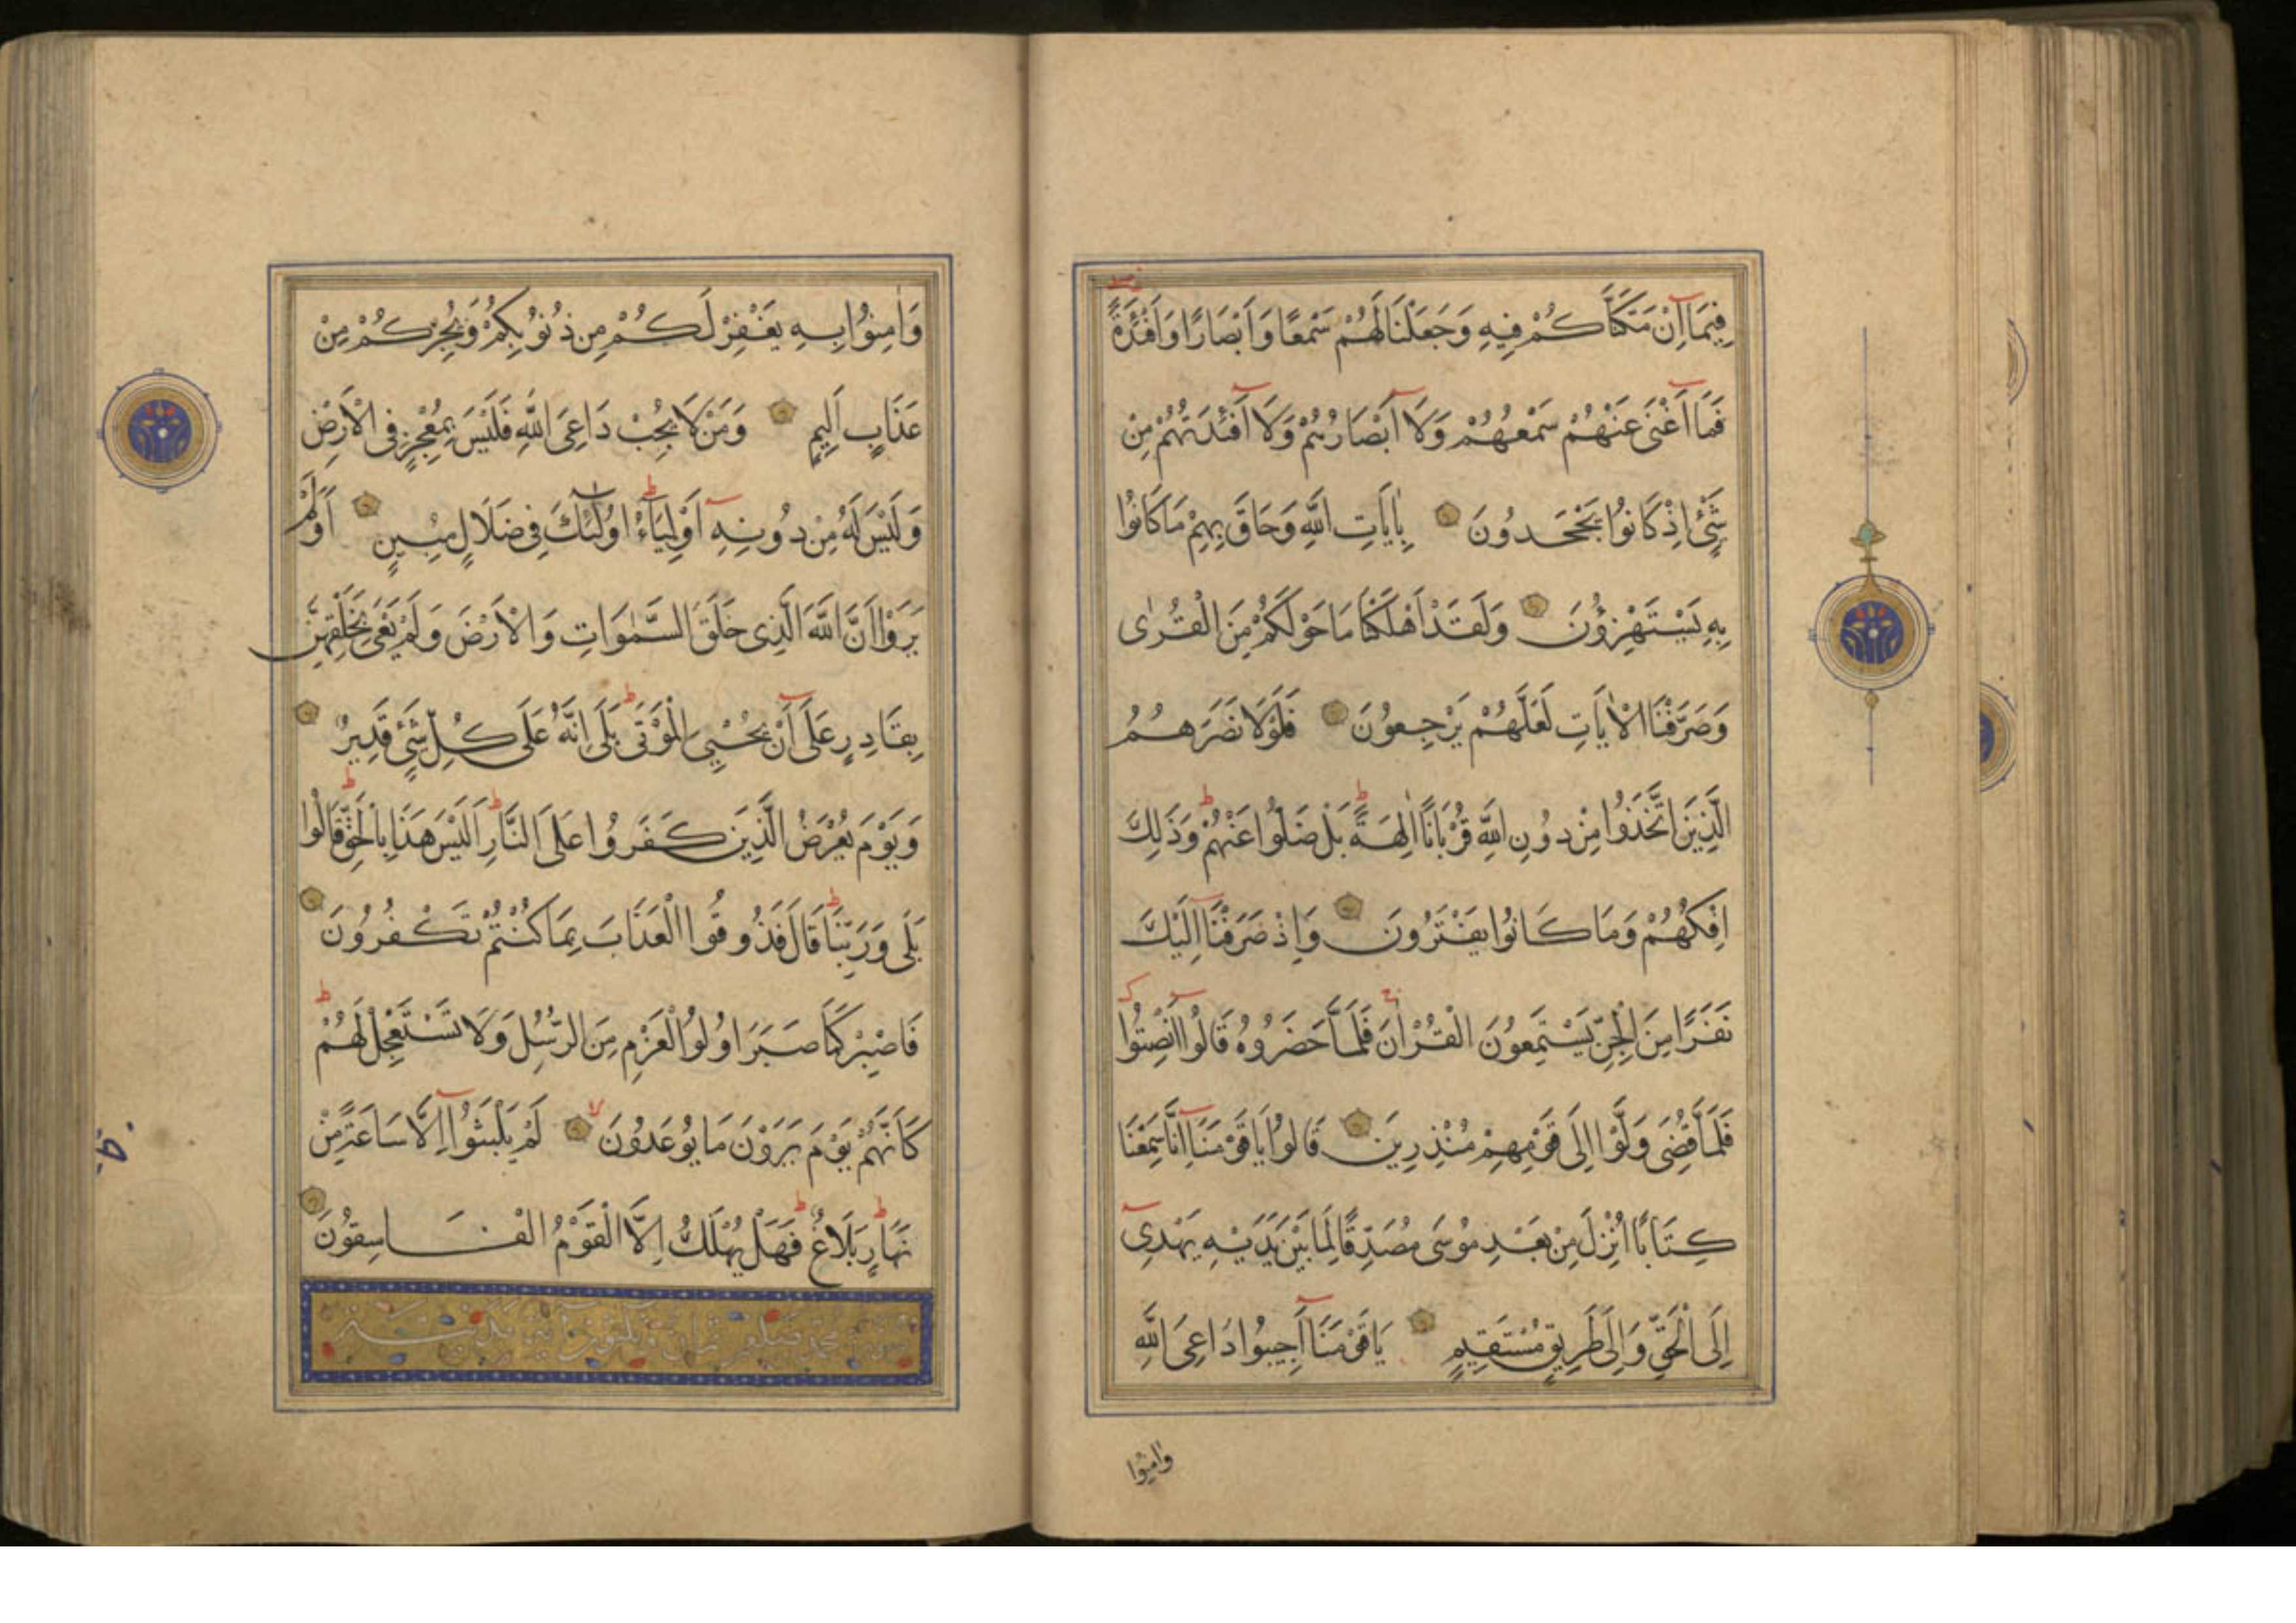 فِيمَا اِنْ مَكَّنَّاكُمْ فِيهِ وَجَعَلْنَا لَهُمْ سَمْعًا وَاَبْصَارًا وَاَفْئِدَةً
فَمَا اَغْنٰى عَنْهُمْ سَمْعُهُمْ وَلَا اَبْصَارُهُمْ وَلَا اَفْئِدَتُهُمْ مِنْ
شَيْءٍ اِذْ كَانُوا يَجْحَدُونَ بِاٰيَاتِ اللّٰهِ وَحَاقَ بِهِمْ مَا كَانُوا
بِهِ يَسْتَهْزِؤُنَ وَلَقَدْ اَهْلَكْنَا مَا حَوْلَكُمْ مِنَ الْقُرٰى
وَصَرَّفْنَا الْاٰيَاتِ لَعَلَّهُمْ يَرْجِعُونَ فَلَوْلَا نَصَرَهُمُ
الَّذِينَ اتَّخَذُوا مِنْ دُونِ اللّٰهِ قُرْبَانًا اٰلِهَةً بَلْ ضَلُّوا عَنْهُمْ وَذَلِكَ
اِفْكُهُمْ وَمَا كَانُوا يَفْتَرُونَ وَاِذْ صَرَفْنَا اِلَيْكَ
نَفَرًا مِنَ الْجِنِّ يَسْتَمِعُونَ الْقُرْاٰنَ فَلَمَّا حَضَرُوهُ قَالُوا اَنْصِتُوا
فَلَمَّا قُضِيَ وَلَّوْا اِلَى قَوْمِهِمْ مُنْذِرِينَ قَالُوا يَا قَوْمَنَا اِنَّا سَمِعْنَا
كِتَابًا اُنْزِلَ مِنْ بَعْدِ مُوسَى مُصَدِّقًا لِمَا بَيْنَ يَدَيْهِ يَهْدِى
اِلَى الْحَقِّ وَاِلَى طَرِيقٍ مُسْتَقِيمٍ يَا قَوْمَنَا اَجِيبُوا دَاعِىَ اللّٰهِ
وَاٰمِنُوا
وَاٰمِنُوا بِهِ يَغْفِرْ لَكُمْ مِنْ ذُنُوبِكُمْ وَيُجِرْكُمْ مِنْ
عَذَابٍ اَلِيمٍ وَمَنْ لَا يُجِبْ دَاعِىَ اللّٰهِ فَلَيْسَ بِمُعْجِزٍ فِى الْاَرْضِ
وَلَيْسَ لَهُ مِنْ دُونِهِ اَوْلِيَاءُ اُولٰئِكَ فِى ضَلَالٍ مُبِينٍ اَوَلَمْ
يَرَوْا اَنَّ اللّٰهَ الَّذِى خَلَقَ السَّمٰوَاتِ وَالْاَرْضَ وَلَمْ يَعْىَ بِخَلْقِهِنَّ
بِقَادِرٍ عَلَى اَنْ يُحْيِىَ الْمَوْتَى بَلَى اِنَّهُ عَلَى كُلِّ شَيْءٍ قَدِيرٌ
وَيَوْمَ يُعْرَضُ الَّذِينَ كَفَرُوا عَلَى النَّارِ اَلَيْسَ هَذَا بِالْحَقِّ قَالُوا
بَلَى وَرَبِّنَا قَالَ فَذُوقُوا الْعَذَابَ بِمَا كُنْتُمْ تَكْفُرُونَ
فَاصْبِرْ كَمَا صَبَرَ اُولُوا الْعَزْمِ مِنَ الرُّسُلِ وَلَا تَسْتَعْجِلْ لَهُمْ
كَاَنَّهُمْ يَوْمَ يَرَوْنَ مَا يُوعَدُونَ لَمْ يَلْبَثُوا اِلَّا سَاعَةً مِنْ
نَهَارٍ بَلَاغٌ فَهَلْ يُهْلَكُ اِلَّا الْقَوْمُ الْفَاسِقُونَ
سورة محمد